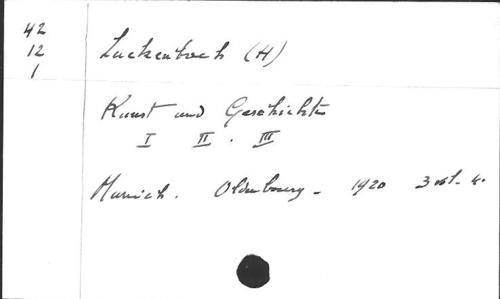 42
12
1
Luckenbach (H)
Kunst und Geschichte
I II. III
Munich. Oldenbourg - 1920